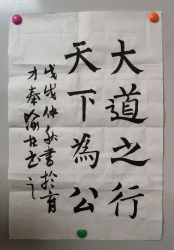 大道之行
天下為公
戊戌仲秋書於育
才奉翰書之